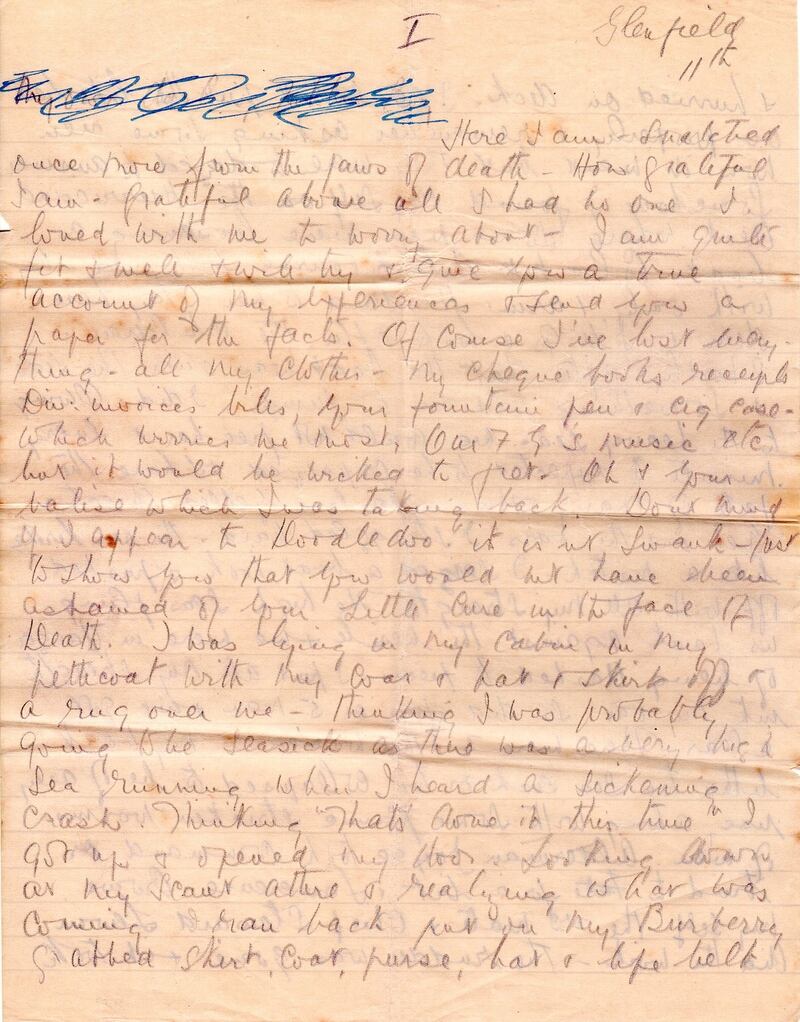 I
Glenfield
11th
Here I am - Snatched
once more from the jaws of death - How grateful
I am - grateful above all I had no one I
loved with me to worry about - I am quite
fit & well & will try & give you a true
account of my experiences & send you a
paper for the facts. Of Course I've lost every-
thing - all my clothes - my cheque books receipts
Div: invoices bills, your fountain pen & cig case -
which worries me most, Our music etc
but it would be wicked to fret - Oh & your
valise which I was taking back. Dont mind
if I appear to Doodledoo. it is'nt Swank - Just
to show you that you would not have been
ashamed of your Little in the face of
Death. I was lying in my cabin in my
petticoat with my Coat & hat & skirt off
a rug over me - thinking I was probably
going to be seasick as there was a very big
Sea running when I heard a sickening
crash. Thinking "Thats done it this time" I
got up & opened my door. Looking down
at my scant attire & realizing what was
coming I ran back put on my Burberry
grabbed skirt, Coat, purse, hat & life belt